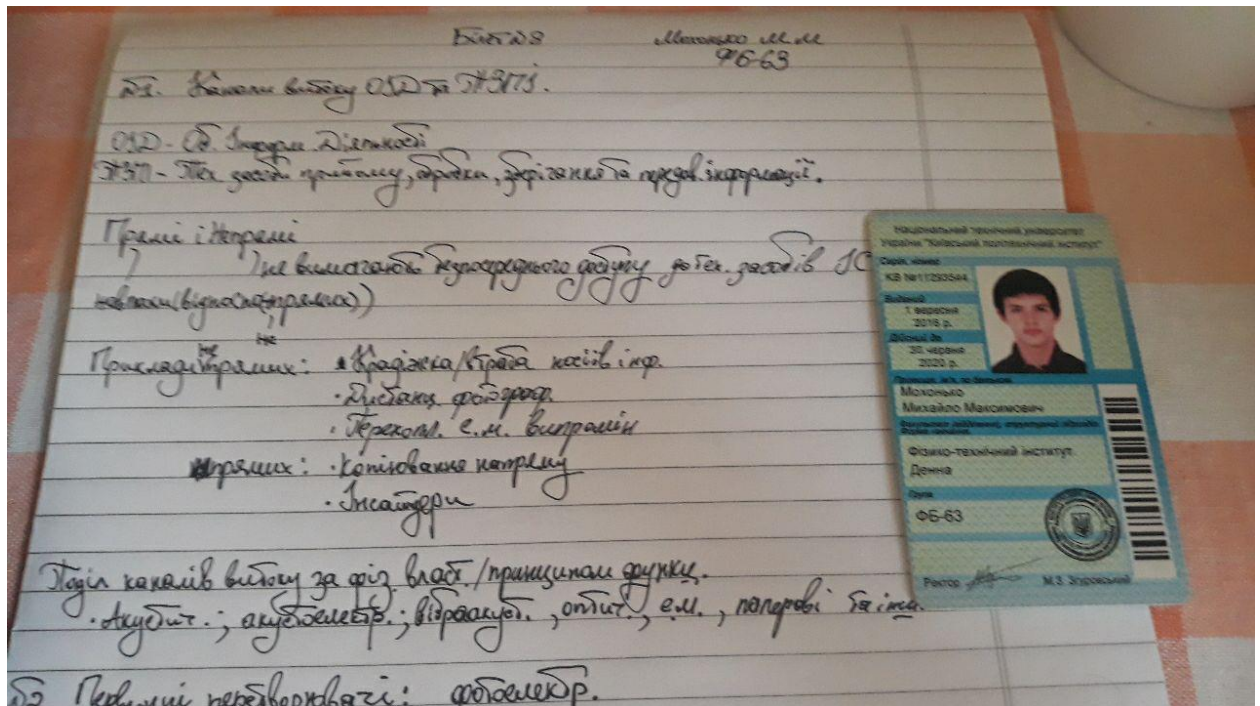 Білет №8 Мохонько М.М
ФБ-63
№1. Канали витоку ОІД та ТЗПІ.
ОІД - Об. Інформ Діяльності
ТЗПІ - Тех засоби прийому, обробки, зберігання та передав. інформації.
Прямі і Непрямі
не вимагають безпосереднього доступу до тех. засобів ІС
навпаки (відносно непрямих))
не
Приклади непрямих: • Крадіжка/втрата носіїв інф.
• Дистанц фотограф.
• Перехопл. е.м. випромін
прямих: • Копіювання напряму
• Інсайдери
Поділ каналів витоку за фіз. власт. /принципом функц.
• Акустич.; акустоелектр.; віброакуст., оптич., е.м., паперові та інш.
№2 Первинні перетворювачі: фотоелектр.
Національний технічний університет
України "Київський політехнічний інститут"
Серія, номер
КВ №11293544
Виданий
1 вересня
2016 р.
Дійсний до
30 червня
2020 р.
Прізвище, ім'я, по батькові
Мохонько
Михайло Максимович
Фізико-технічний інститут
Денна
Група
ФБ-63
Ректор М.З. Згуровський